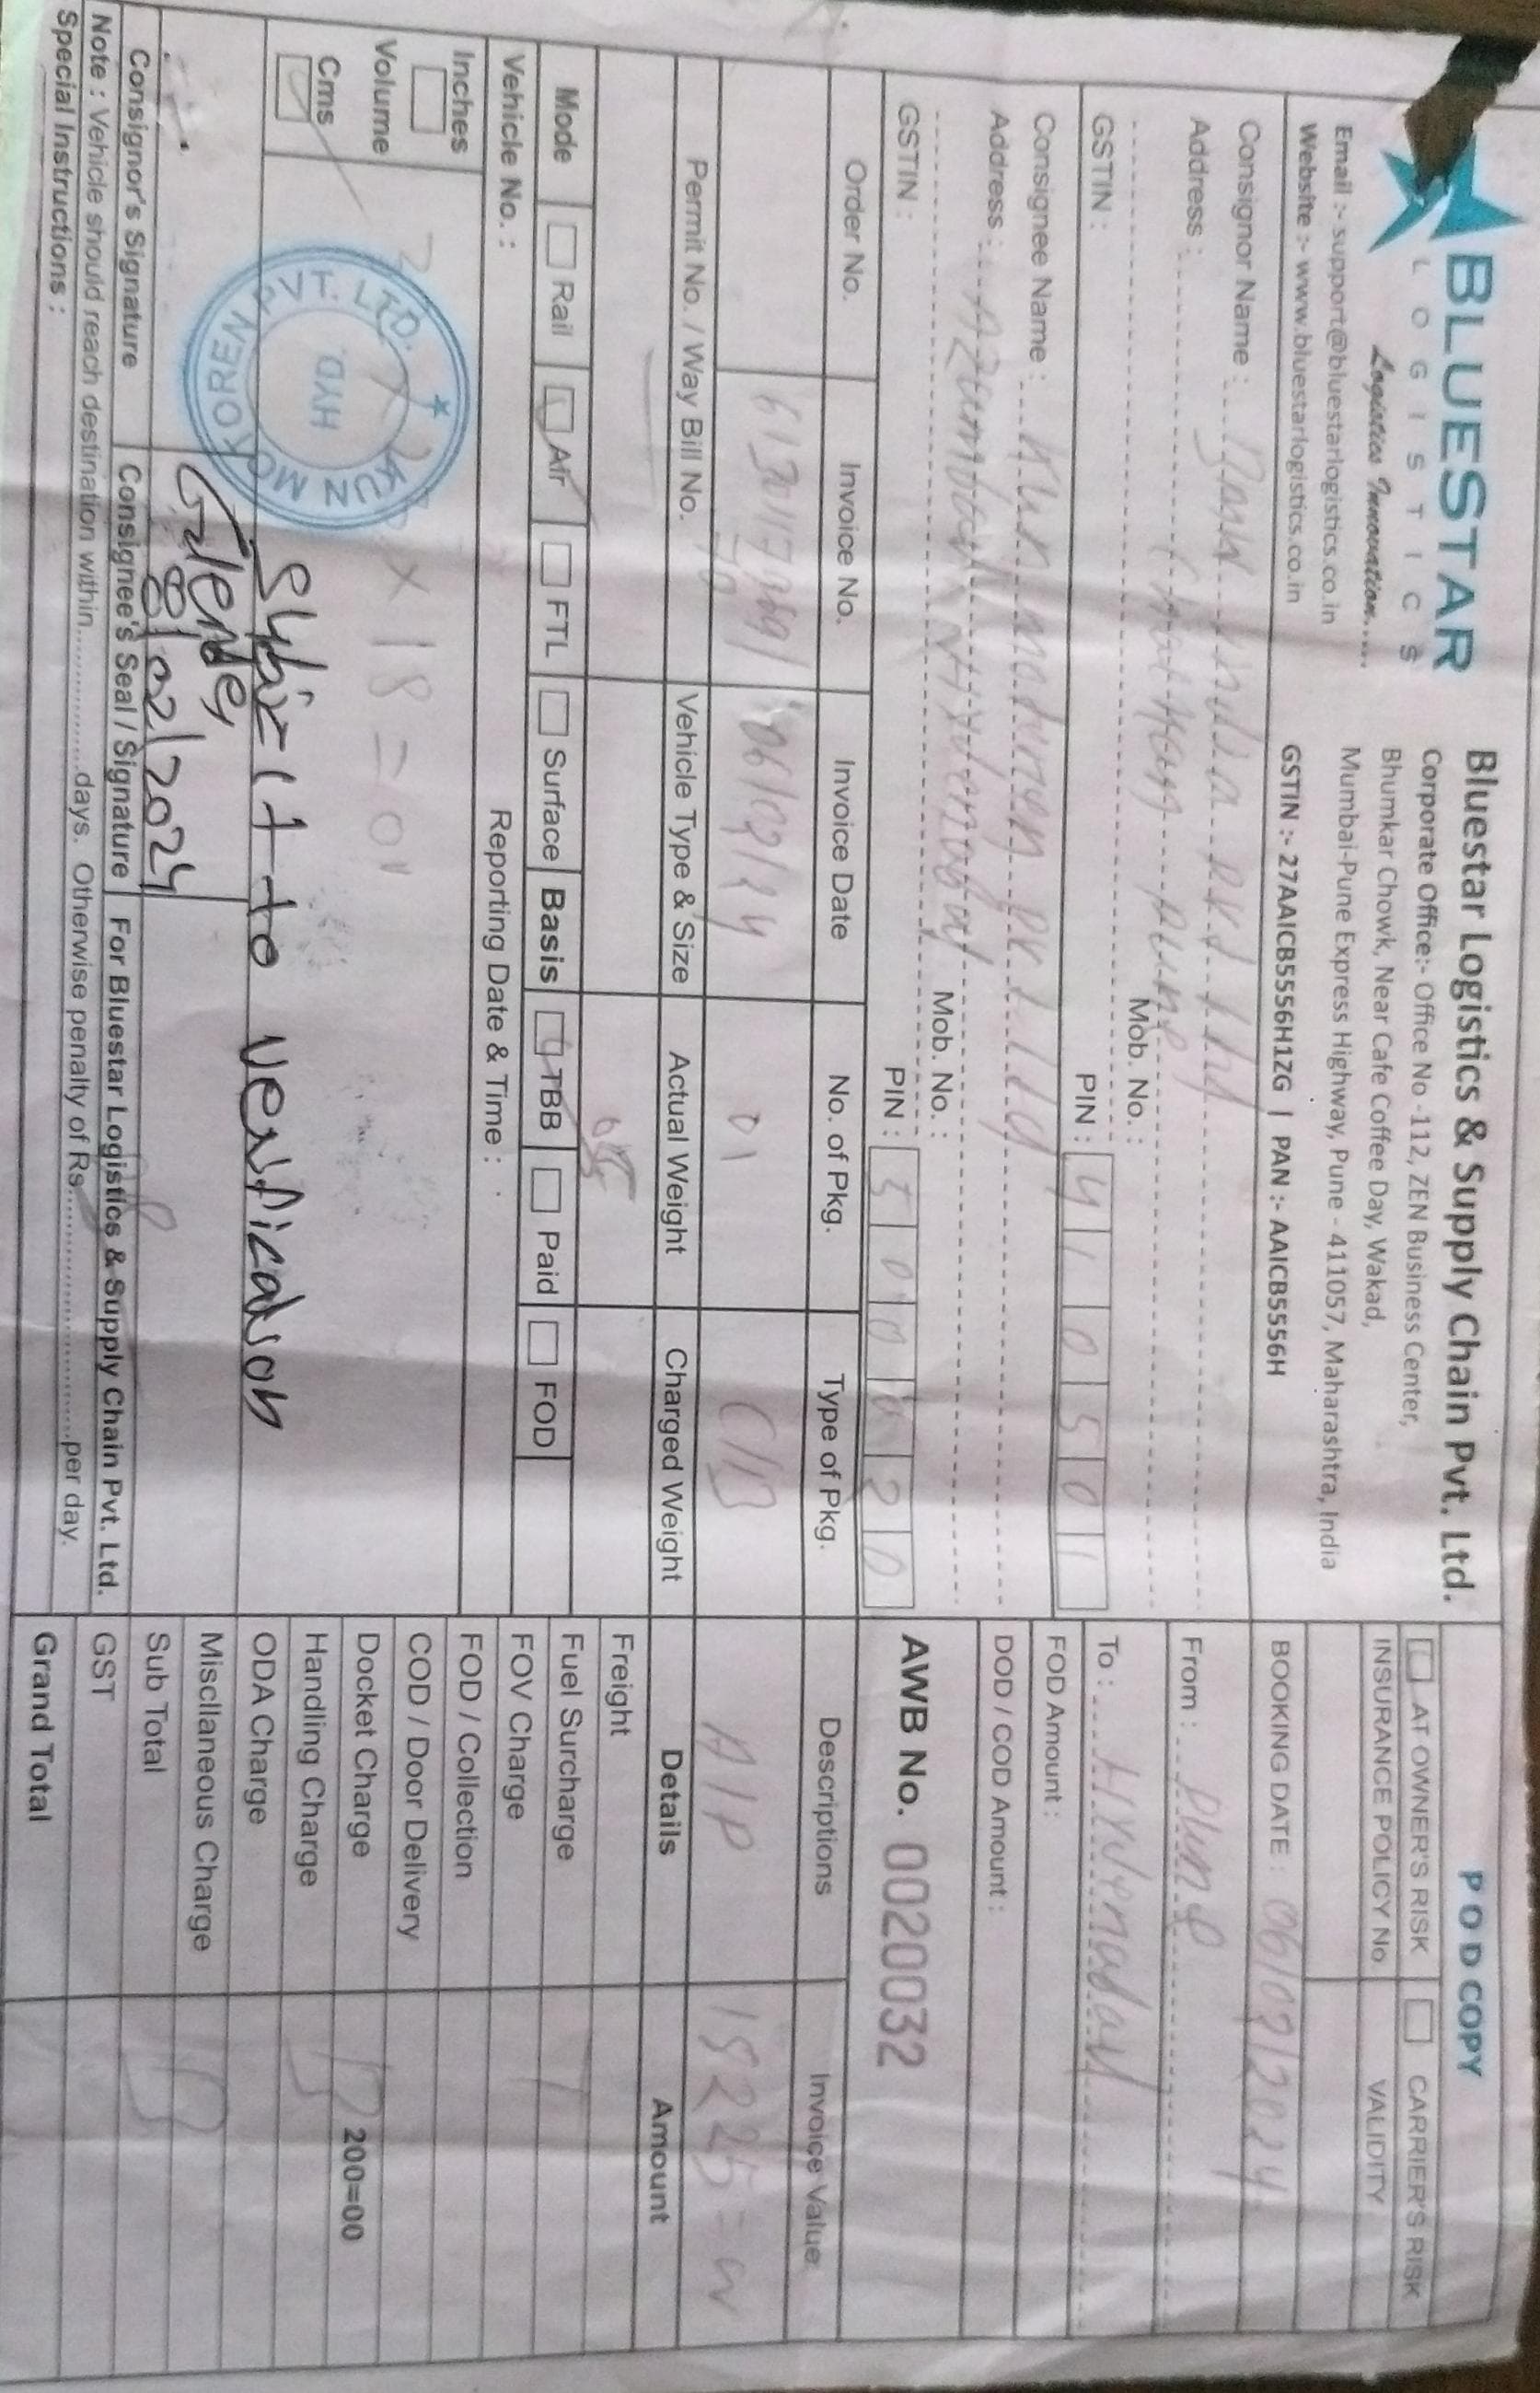 BLUESTAR
LOGISTICS
Logistics Innovation.....
Email :- support@bluestarlogistics.co.in
Website :- www.bluestarlogistics.co.in
Bluestar Logistics & Supply Chain Pvt. Ltd.
Corporate Office:- Office No -112, ZEN Business Center,
Bhumkar Chowk, Near Cafe Coffee Day, Wakad,
Mumbai-Pune Express Highway, Pune - 411057, Maharashtra, India
GSTIN :- 27AAICB5556H1ZG | PAN :- AAICB5556H
POD COPY
AT OWNER'S RISK CARRIER'S RISK
INSURANCE POLICY No. VALIDITY
BOOKING DATE : 06/02/2024
From : Pune
To : Hyderabad
FOD Amount :
DOD / COD Amount :
AWB No. 0020032
Consignor Name : BMW India Pvt Ltd
Address : Pune
Mob. No. :
GSTIN : PIN : 410501
Consignee Name : Kun motoren Pvt Ltd
Address : Hyderabad
Mob. No. :
GSTIN : PIN : 500020
Order No. Invoice No. Invoice Date No. of Pkg. Type of Pkg. Descriptions Invoice Value
06/02/24 01 C/B A/P
Permit No. / Way Bill No. Vehicle Type & Size Actual Weight Charged Weight Details Amount
Freight
Fuel Surcharge
FOV Charge
FOD / Collection
COD / Door Delivery
Docket Charge 200=00
Handling Charge
ODA Charge
Miscllaneous Charge
Sub Total
GST
Grand Total
Mode Rail Air FTL Surface Basis TBB Paid FOD
Vehicle No. : Reporting Date & Time :
Inches
Volume
Cms
× 18 = 01
KUN MOTOREN PVT. LTD.
HYD
Subject to verification
8/02/2024
Consignor's Signature Consignee's Seal / Signature For Bluestar Logistics & Supply Chain Pvt. Ltd.
Note : Vehicle should reach destination within.................days. Otherwise penalty of Rs..............................per day.
Special Instructions :